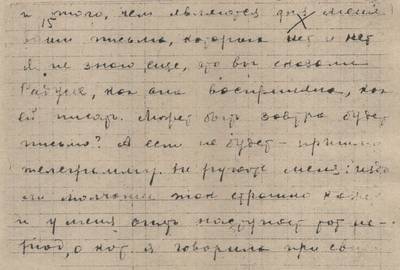 и этого, чем являются для меня
15
ваши письма, которых нет и нет
Я не знаю еще, что вы сказали
как она восприняла, как
ей писать. Может быть завтра будет
письмо? А если не будет - пришлю
телеграмму. Не ругайте меня:
молчание так страшно
и у меня опять наступает тот пе-
риод, о кот. я говорила при